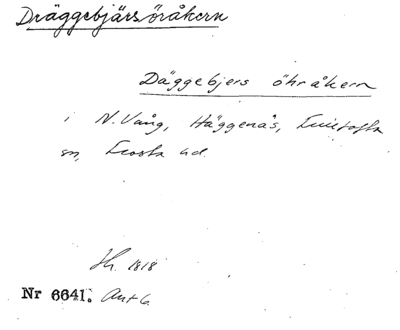 Dräggebjärsöråkern
Däggebjers öhråkern
i N. Vång, Häggenäs,
sn, Frosta hd.
Sk. 1818
Nr 6641. Avt 6.